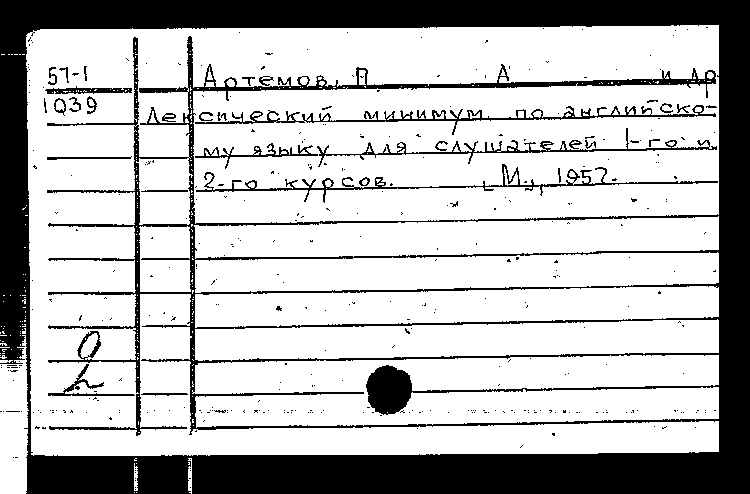 57-1
1039
Артемов, П А и др
Лексический минимум по английско-
му языку для слушателей 1-го и
2-го курсов. [М.], 1957.
2